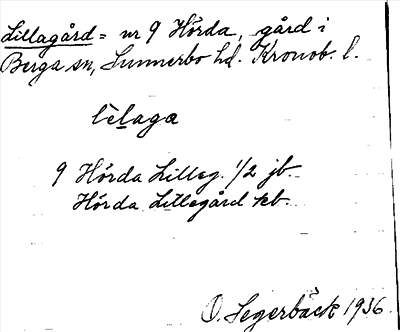 Lillagård = nr 9 Hörda, gård i
Berga sn, Sunnerbo hd. Kronob. l.
lèlaga
9 Hörda Lilleg. 1/2 jb.
Hörda Lillegård kb.
O. Segerbäck 1936.